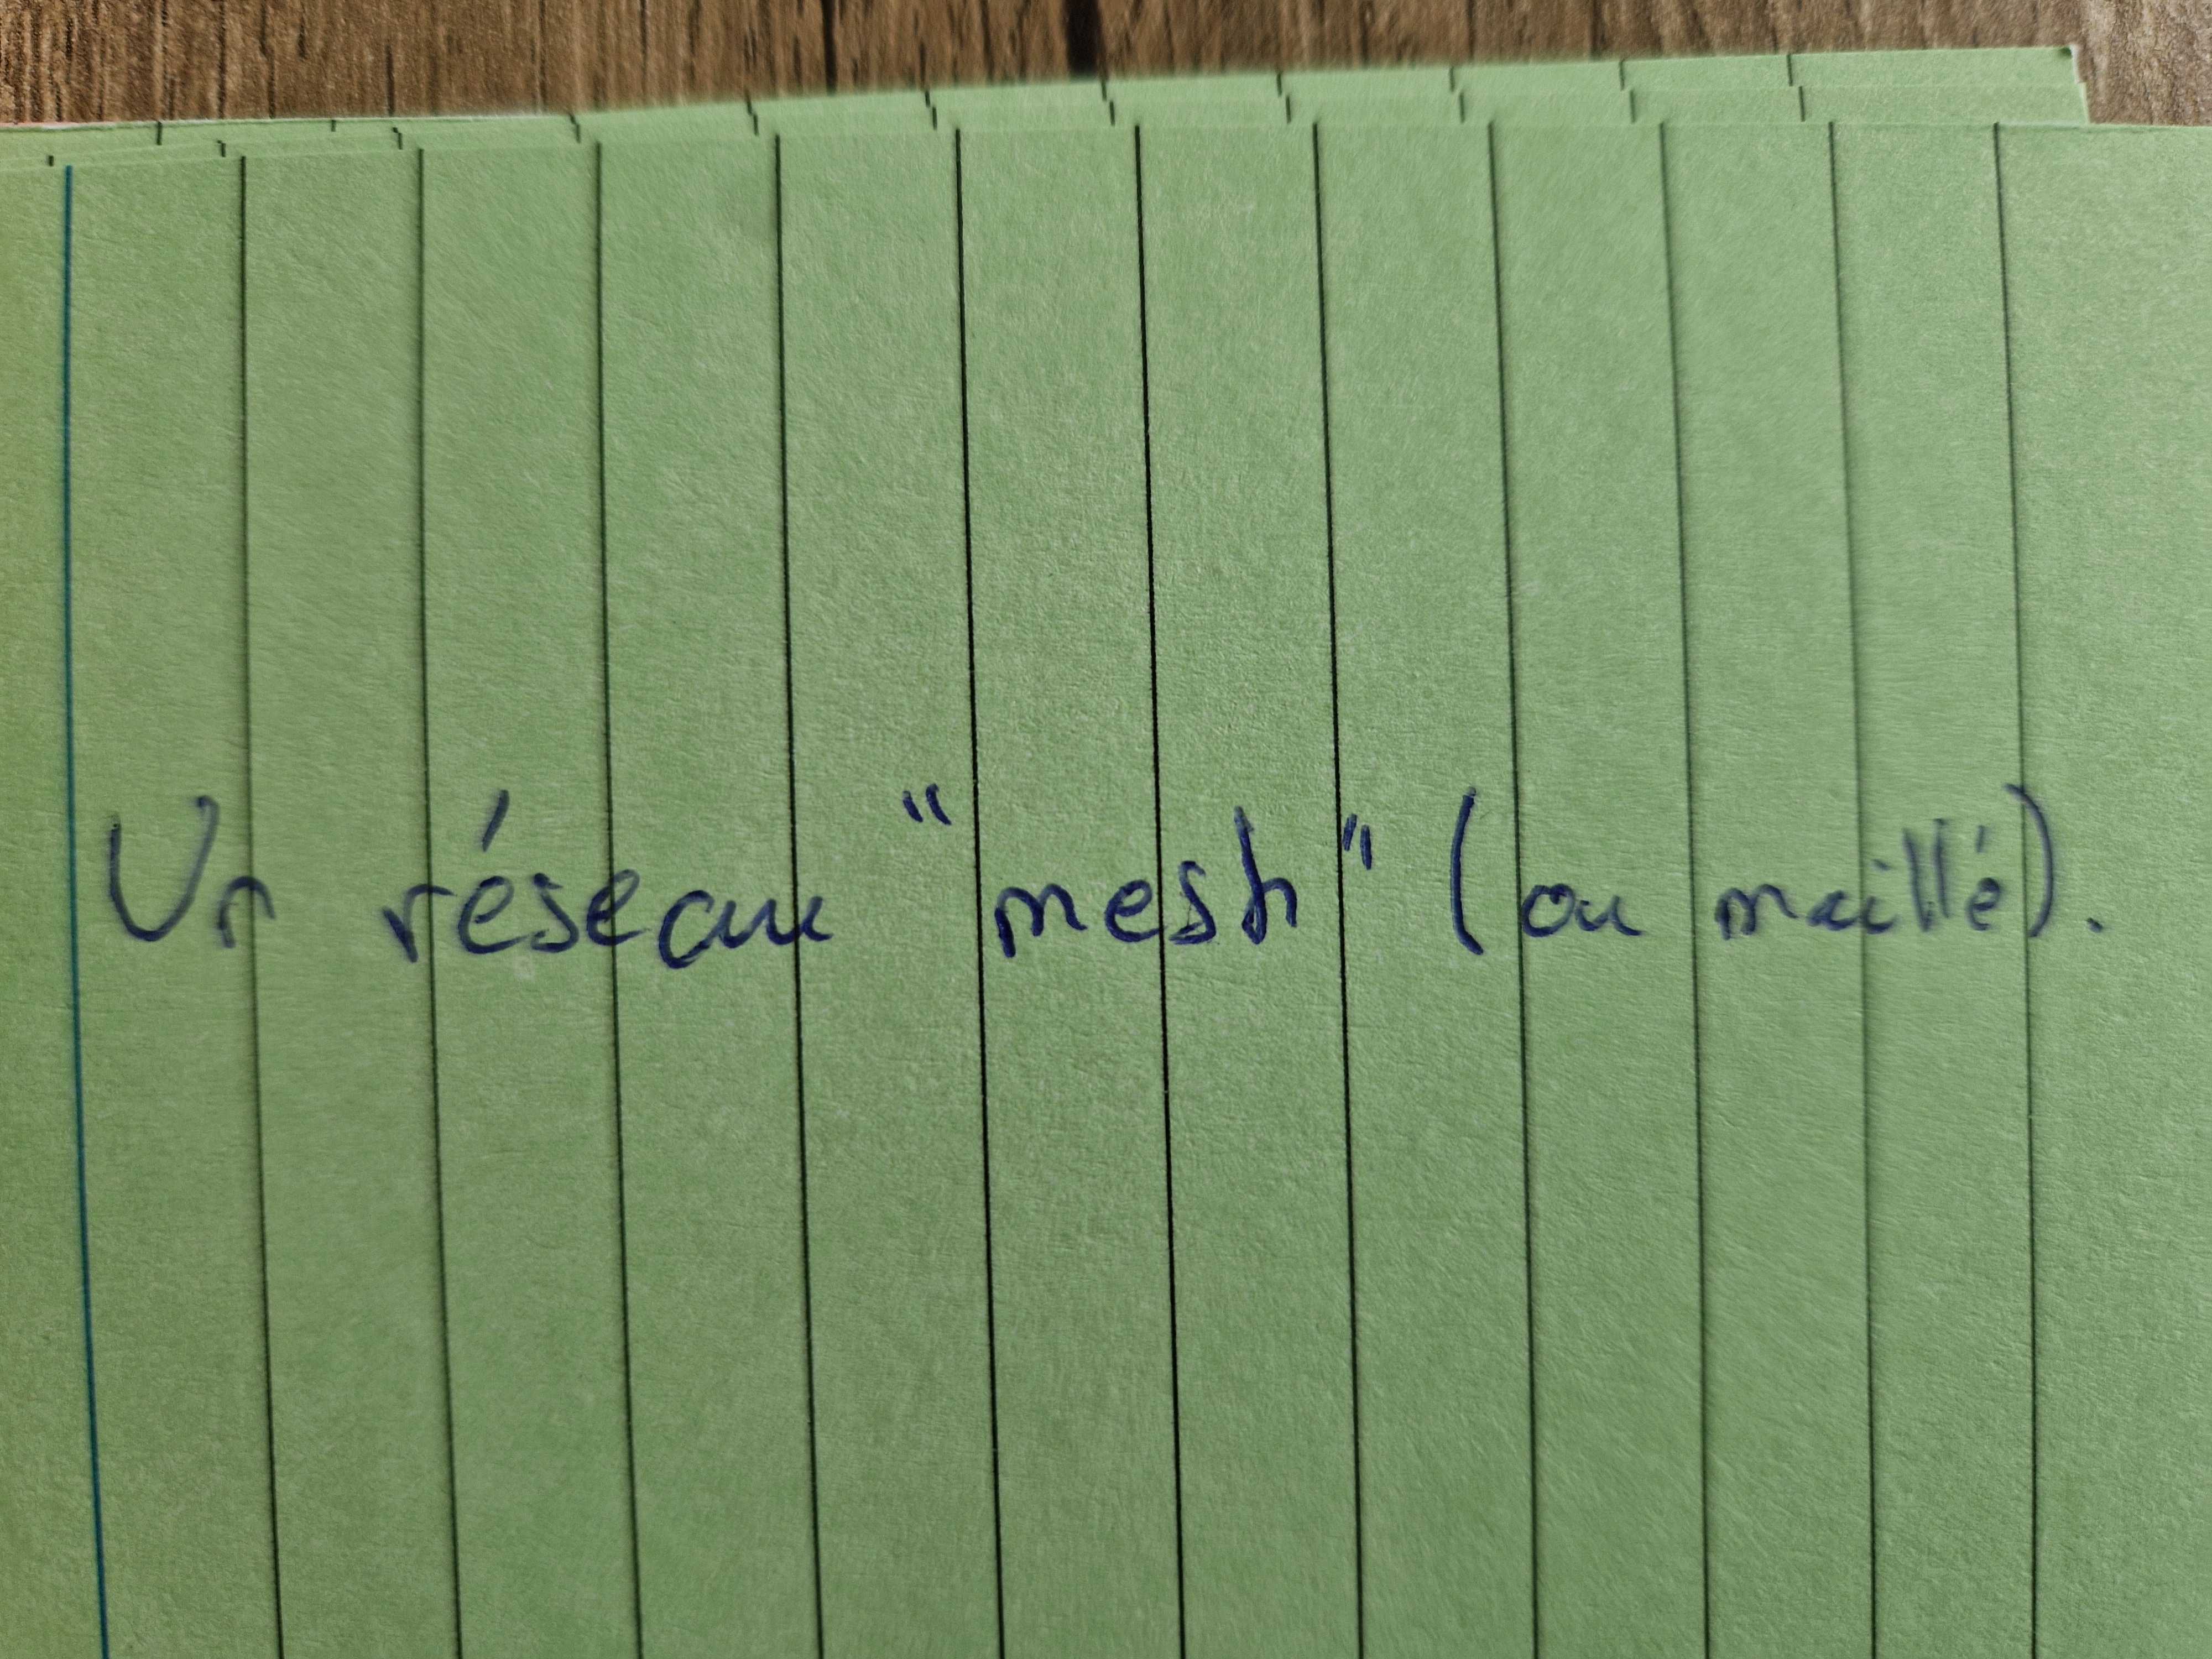 Un réseau "mesh" (ou maillé).